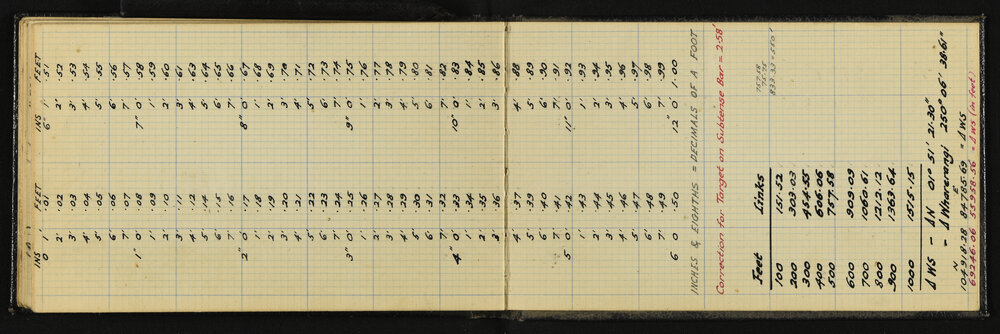 INS FEET INS FEET
0 1' .01 6" 1' .51
2' .02 2' .52
3' .03 3' .53
4' .04 4' .54
5' .05 5' .55
6' .06 6' .56
7' .07 7' .57
1" 0' .08 7" 0' .58
1' .09 1' .59
2' .10 2' .60
3' .11 3' .61
4' .12 4' .63
5' .14 5' .64
6' .15 6' .65
7' .16 7' .66
2" 0' .17 8" 0' .67
1' .18 1' .68
2' .19 2' .69
3' .20 3' .70
4' .21 4' .71
5' .22 5' .72
6' .23 6' .73
7' .24 7' .74
3" 0' .25 9" 0' .75
1' .26 1' .76
2' .27 2' .77
3' .28 3' .78
4' .29 4' .79
5' .30 5' .80
6' .31 6' .81
7' .32 7' .82
4" 0' .33 10" 0' .83
1' .34 1' .84
2' .35 2' .85
3' .36 3' .86
4' .37 4' .88
5' .39 5' .89
6' .40 6' .90
7' .41 7' .91
5 0' .42 11" 0' .92
1' .43 1' .93
2' .44 2' .94
3' .45 3' .95
4' .46 4' .96
5' .47 5' .97
6' .48 6' .98
7' .49 7' .99
6 0 .50 12" 0' 1.00
INCHES & EIGHTHS = DECIMALS OF A FOOT
Correction for Target on Subtense Bar = 2.58'
Feet Links
757.58
75.75
833.33 = 550'
100 151.52
200 303.03
300 454.55
400 606.06
500 757.58
600 909.09
700 1060.61
800 1212.12
900 1363.64
1000 1515.15
Δ WS - Δ N 01° 51' 21.30"
- Δ Wharerangi 250° 06' 38.61"
N E
104918.28 84785.69 = Δ WS
69246.06 55958.56 = Δ WS (in feet)